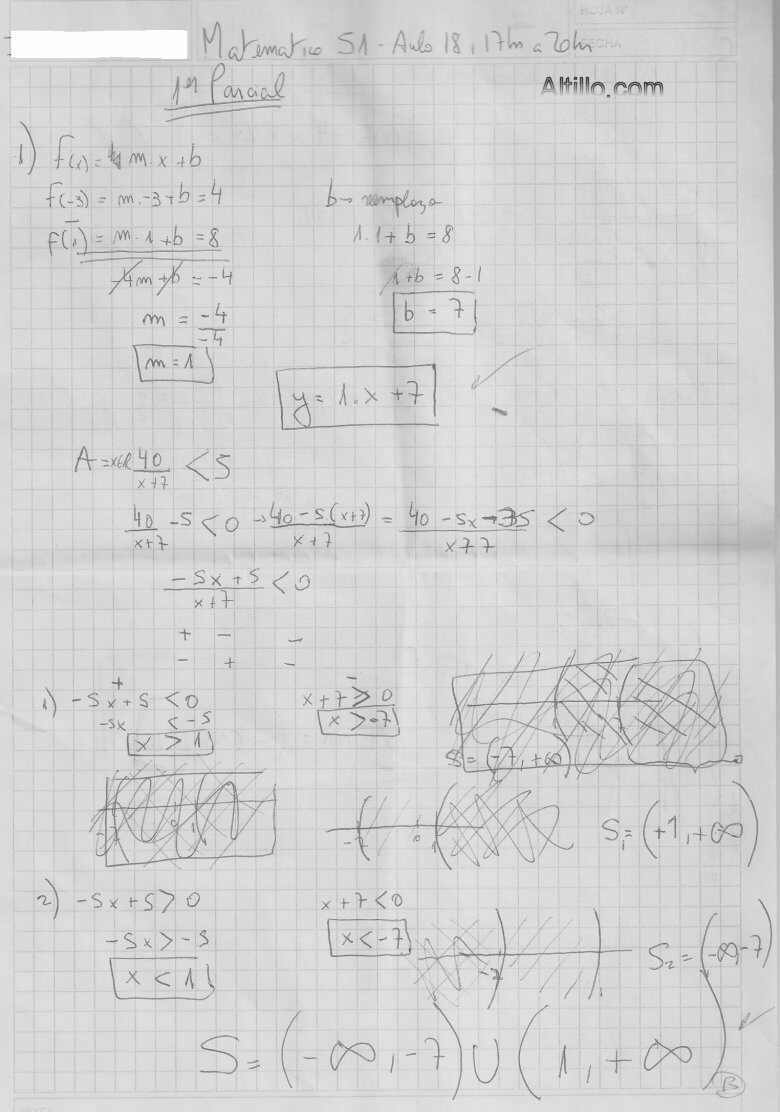 HOJA Nº
FECHA
Matematica 51 - Aula 18, 17hs a 20hs
1er Parcial
Altillo.com
1) f(x) = m.x+b
f(-3) = m.-3+b = 4
f(1) = m.1+b = 8
-4m+b = -4
m = -4/-4
m = 1
b → remplazo
1.1+b = 8
1+b = 8-1
b = 7
y = 1.x+7
A = x∈R 40/x+7 < 5
40/x+7 -5 < 0 → 40-5(x+7)/x+7 = 40-5x-35/x+7 < 0
-5x+5/x+7 < 0
+ - -
- + -
1) -5x+5 < 0
-5x < -5
x > 1
x+7 > 0
x > -7
S = (-7, +∞)
-7 0 1
-7 0 1
S₁ = (+1, +∞)
2) -5x+5 > 0
-5x > -5
x < 1
x+7 < 0
x < -7
-7 1
S₂ = (-∞, -7)
S = (-∞, -7) ∪ (1, +∞)
B